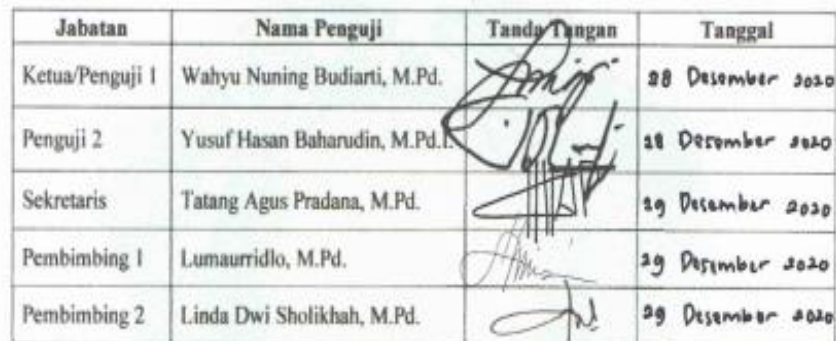 Jabatan Nama Penguji Tanda Tangan Tanggal
Ketua/Penguji 1 Wahyu Nuning Budiarti, M.Pd. 28 Desember 2020
Penguji 2 Yusuf Hasan Baharudin, M.Pd.I. 28 Desember 2020
Sekretaris Tatang Agus Pradana, M.Pd. 29 Desember 2020
Pembimbing 1 Lumaurridlo, M.Pd. 29 Desember 2020
Pembimbing 2 Linda Dwi Sholikhah, M.Pd. 29 Desember 2020